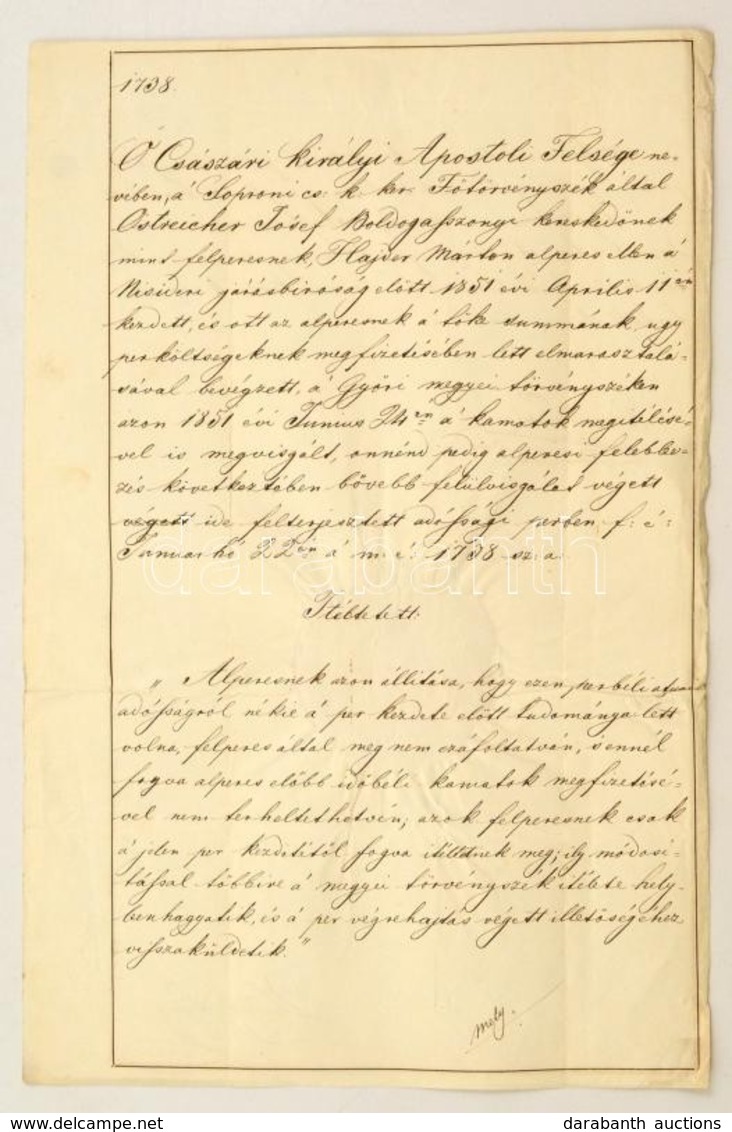 1738.
Ő Császári királyi Apostoli Felsége ne-
vében, á Soproni cs: k. ker: Főtörvényszék által
Ostreicher Jósef Boldogaszonyi kereskedőnek
mint felperesnek, Hajder Márton alperes ellen á
Nisideri járásbiróság előtt 1851 évi April is 11én
kezdett, és ott az alperesnek á tőke summának, ugy
perköltségeknek megfizetésében lett elmarasztalá-
sával bevégzett, á Győri megyei törvényszéken
azon 1851 évi Junius 24én á kamatok megitélésé-
vel is megvisgált, onnénd pedig alperesi felebbe-
zés következtében bővebb felülvisgálat végett
végett ide felterjesztett adóssági perben f: é:
Januar hó 22én á m: é: 1738 sz: a:
Itéltetett:
„Alperesnek azon állitása, hogy ezen perbéli
adósságról nékie á per kezdete előtt tudománya lett
volna, felperes által meg nem czáfoltatván, s ennél
fogva alperes előbb időbéli kamatok megfizetésé-
vel nem terheltethetvén; azok felperesnek csak
á jelen per kezdetétől fogva itéltetnek meg; ily módosi-
tással többire á megyei törvényszék itélete hely-
benhagyatik, és á per végrehajtás végett illetőségéhez
visszaküldetik."
mely:
darabanth
darabanth auctions
www.delcampe.net